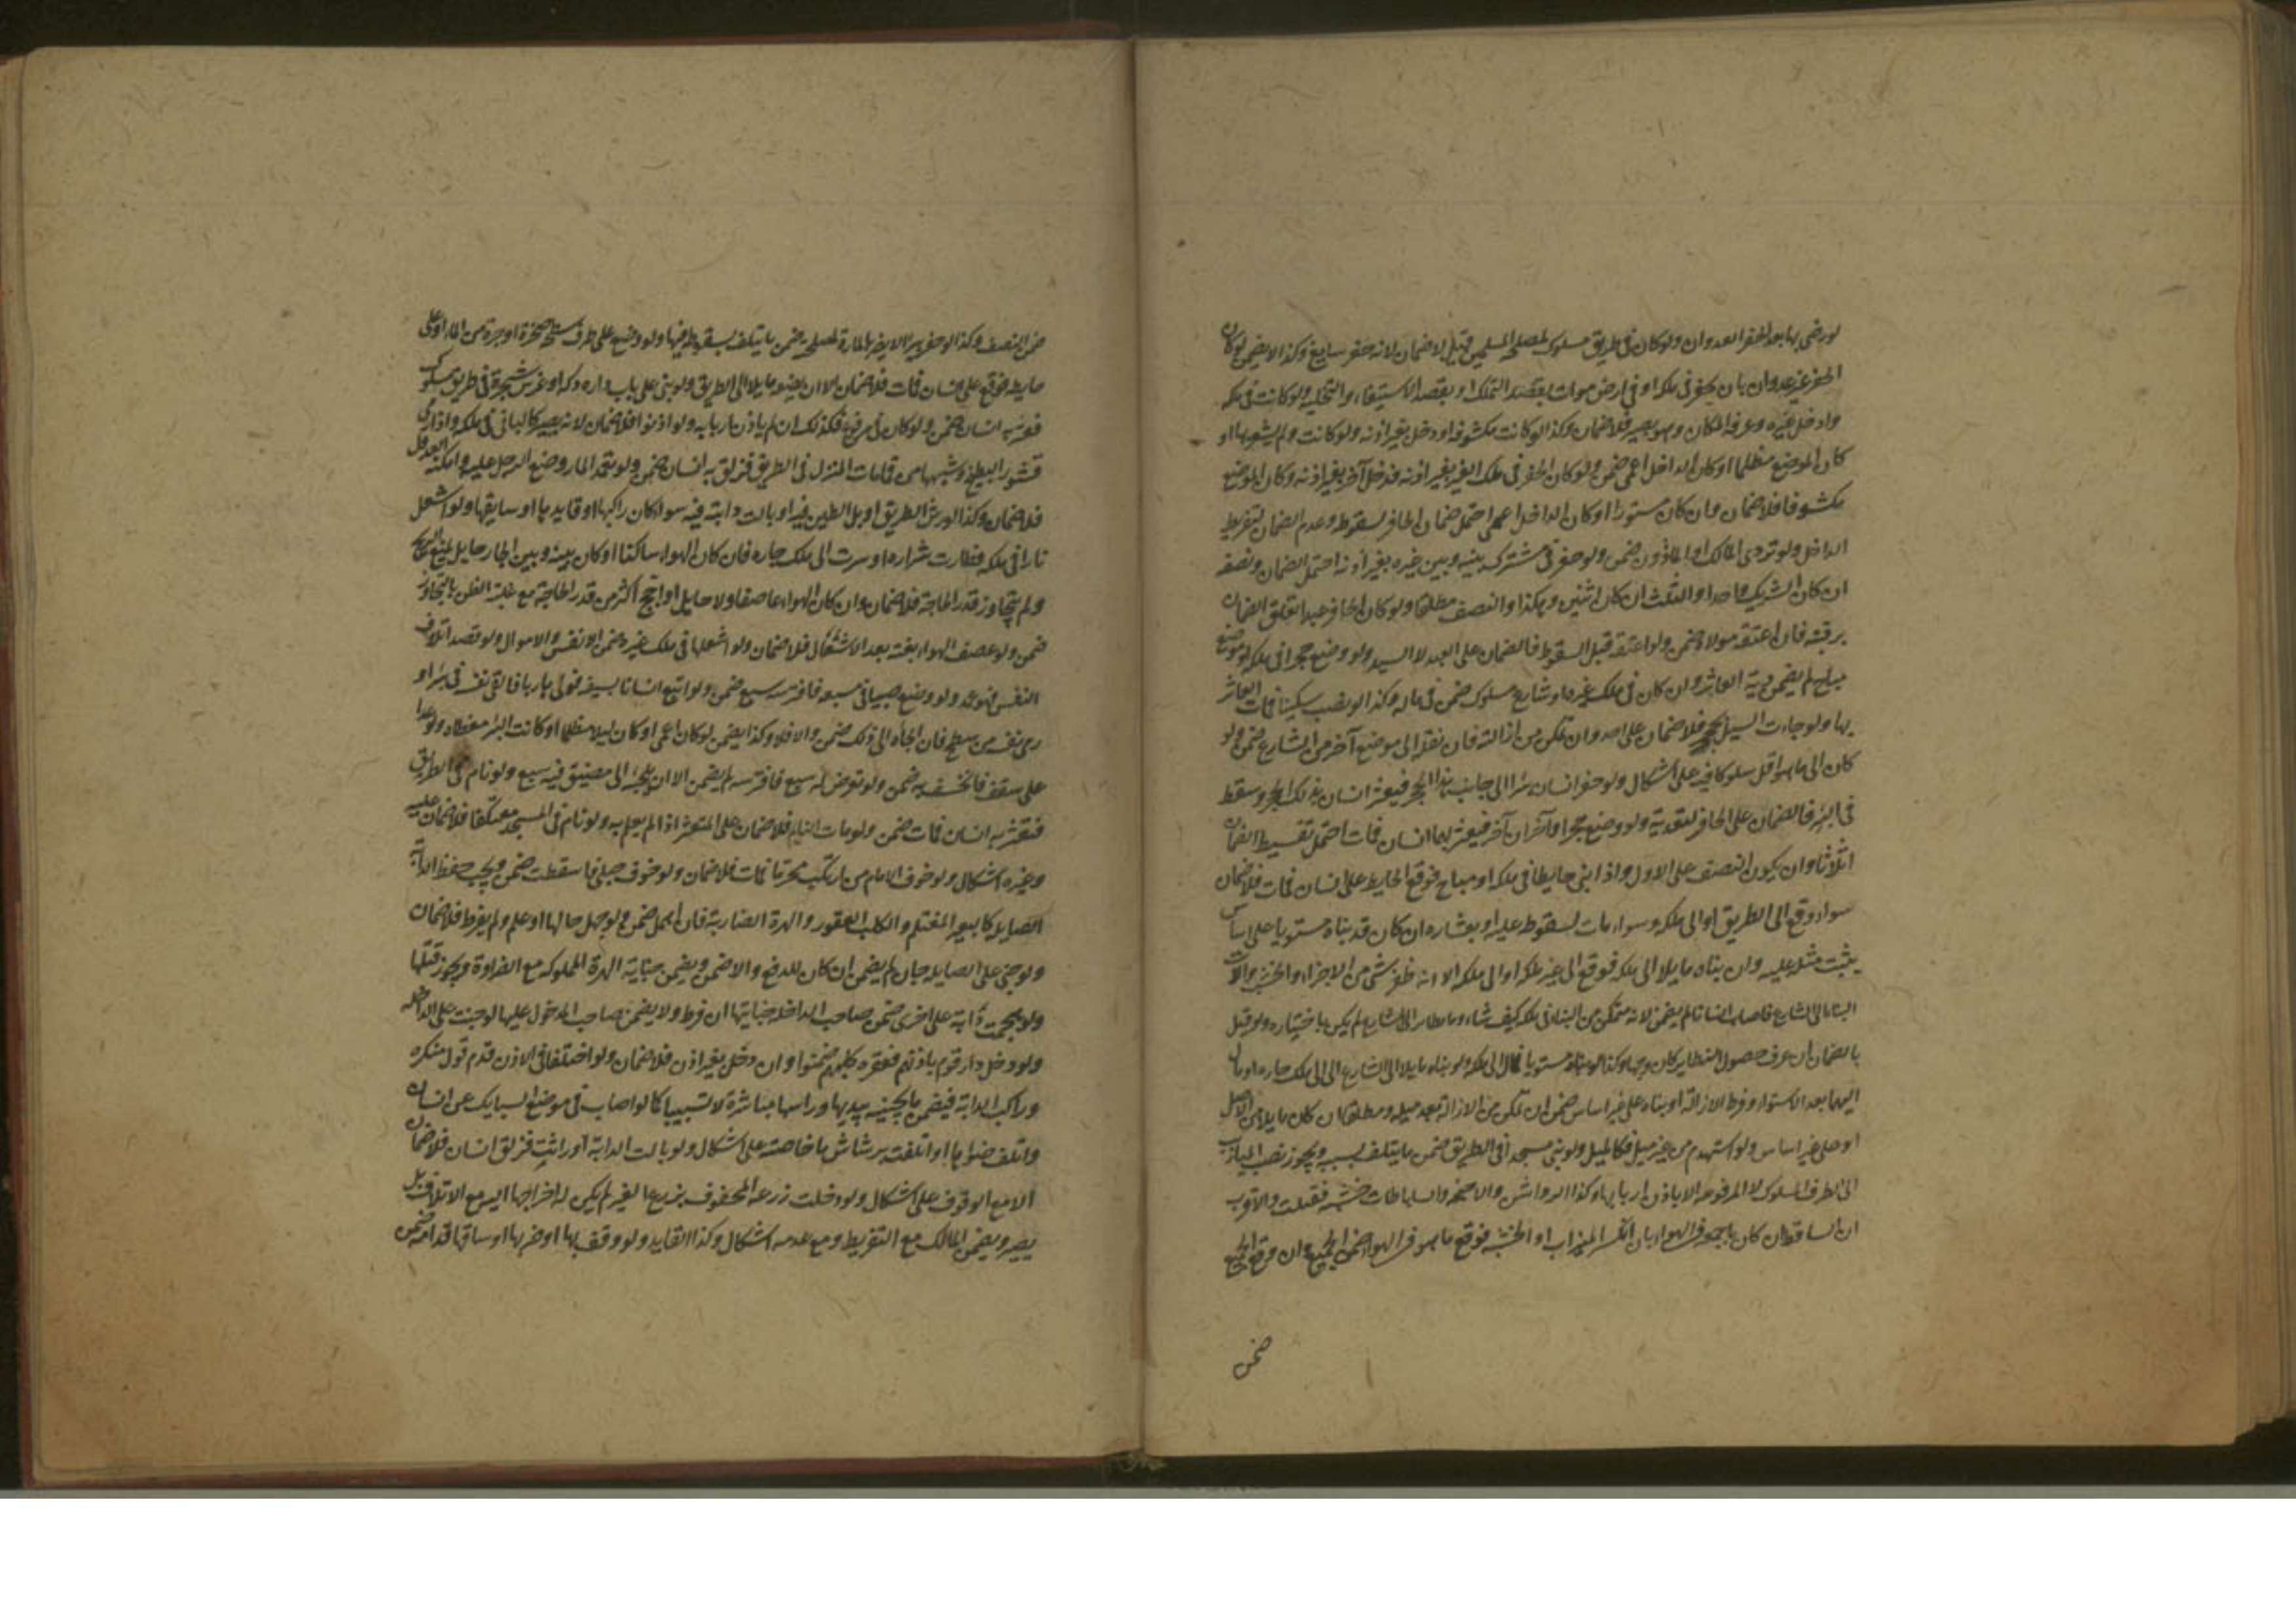 لو رضى بها بعد الحفر العدوان ولو كان فى طريق مسلوك لمصلحة المسلمين قيل لا ضمان لانه حفر سايغ وكذا لا يضمن لو كان
الحفر غير عدوان بان يحفر فى ملكه او فى ارض موات بقصد التملك او بقصد الاستيفاء والتخلية ولو كانت فى ملكه
وادخل غيره وعرفه المكان وهو بصير فلا ضمان وكذا لو كانت مكشوفة او دخل بغير اذنه ولو كانت ولم يشعر بها او
كان الموضع مظلما او كان الداخل اعمى ضمن ولو كان الحفر فى ملك الغير بغير اذنه فدخل آخر بغير اذنه وكان الموضع
مكشوفا فلا ضمان وان كان مستورا او كان الداخل اعمى احتمل ضمان الحافر لسقوطه وعدم الضمان لتفريط
الداخل ولو تردى المالك او الماذون ضمن ولو حفر فى مشترك بينه وبين غيره بغير اذنه احتمل الضمان ونصفه
ان كان الشريك واحدا والثلث ان كان اثنين وهكذا والنصف مطلقا ولو كان الحافر عبدا تعلق الضمان
برقبته فان اعتقه مولاه ضمن ولو اعتقه قبل السقوط فالضمان على العبد لا السيد ولو وضع حجرا فى ملكه او موضع
مباح لم يضمن دية العاثر وان كان فى ملك غيره او شارع مسلوك ضمن فى ماله وكذا لو نصب سكينا فمات العاثر
بها ولو جاءت السيل بحجر فلا ضمان على احد وان تمكن من ازالته فان نقله الى موضع آخر من الشارع ضمن ولو
كان الى ما هو اقل سلوكا فيه على اشكال ولو حفر انسان بئرا الى جانب هذا الحجر فيعثر انسان بذلك الحجر وسقط
فى البئر فالضمان على الحافر لتعديه ولو وضع حجرا وآخران آخر فيعثر بهما انسان فمات احتمل تقسيط الضمان
اثلاثا وان يكون النصف على الاول واذا بنى حايطا فى ملكه او مباح فوقع الحايط على انسان فمات فلا ضمان
سواء وقع الى الطريق او الى ملكه وسواء مات لسقوطه عليه او بغباره ان كان قد بناه مستويا على اساس
يثبت مثله عليه وان بناه مايلا الى ملكه فوقع الى غير ملكه او الى ملكه الا انه ظفر شئ من الاجزاء والخشب وآلات
البناء الى الشارع فاصاب انسانا لم يضمن لانه متمكن من البناء فى ملكه كيف شاء وما تطاير الى الشارع لم يكن باختياره ولو قيل
بالضمان ان عرف حصول التطاير كان وجها وكذا لو بناه مستويا فمال الى ملكه ولو بناه مايلا الى الشارع او الى ملك جاره او مال
اليهما بعد الاستواء وفرط فى الازالة او بناه على غير اساس ضمن ان تمكن من الازالة بعد ميله ومطلقا ان كان مايلا من الاصل
او على غير اساس ولو استهدم من غير ميل فكالميل ولو بنى مسجدا فى الطريق ضمن ما يتلف بسببه ويجوز نصب الميازيب
الى الطرق المسلوكة لا المرفوعة الا باذن اربابها وكذا الرواشن والاجنحة والساباطات خشبه فقتلت والاقرب
ان الساقط ان كان باجمعه فى الهواء بان انكسر الميزاب او الخشبة فوقع ما هو فى الهواء ضمن الجميع وان وقع الجميع
ضمن
ضمن النصف وكذا لو حفر بئرا لا يضر بالمارة لمصلحة ضمن ما يتلف بسقوطه فيها ولو وضع على طرف سطحه صخرة او جرة من الماء او على
حايطه فوقع على انسان فمات فلا ضمان الا ان يضعه مايلا الى الطريق ولو بنى على باب داره دكة او غرس شجرة فى طريق مسلوك
فعثر به انسان ضمن ولو كان فى مرفوع فكذلك ان لم ياذن اربابه ولو اذنوا فلا ضمان لانه يصير كالبانى فى ملكه واذا رمى
قشور البطيخ وشبهها من قمامات المنزل فى الطريق فزلق به انسان ضمن ولو تعمد المار وضع الرجل عليه وامكنه العدول
فلا ضمان وكذا لو رش الطريق او بل الطين فيه او بالت دابته فيه سواء كان راكبها او قايدها او سايقها ولو اشعل
نارا فى ملكه فطارت شراره او سرت الى ملك جاره فان كان الهواء ساكنا او كان بينه وبين الجار حايل يمنع الريح
ولم يتجاوز قدر الحاجة فلا ضمان وان كان الهواء عاصفا ولا حايل او اجج اكثر من قدر الحاجة مع غلبة الظن بالتجاوز
ضمن ولو عصف الهواء بغتة بعد الاشتعال فلا ضمان ولو اشعلها فى ملك غيره ضمن الانفس والاموال ولو قصد اتلاف
النفس فهو عمد ولو وضع صبيا فى مسبعة فافترسه سبع ضمن ولو اتبع انسانا بسيف فولى هاربا فالقى نفسه فى بئر او
رمى نفسه من سطح فان الجاه الى ذلك ضمن والا فلا وكذا يضمن لو كان اعمى او كان ليلا مظلما او كانت البئر مغطاة ولو عدا
على سقف فانخسف به ضمن ولو تعرض له سبع فافترسه لم يضمن الا ان يلجئه الى مضيق فيه سبع ولو نام فى الطريق
فتعثر به انسان فمات ضمن ولو مات النايم فلا ضمان على المتعثر اذا لم يعلم به ولو نام فى المسجد معتكفا فلا ضمان عليه
وغيره اشكال ولو خوف الامام من ارتكب محرما فمات فلا ضمان ولو خوف حبلى فاسقطت ضمن ويجب حفظ الدابة
الصايلة كالبعير المغتلم والكلب العقور والهرة الضاربة فان اهمل ضمن ولو جهل حالها او علم ولم يفرط فلا ضمان
ولو جنى على الصايلة جان لم يضمن ان كان للدفع والا ضمن ويضمن جناية الهرة المملوكة مع الضراوة ويجوز قتلها
ولو هجمت دابة على اخرى ضمن صاحب الداخلة جنايتها ان فرط ولا يضمن صاحب المدخول عليها لو جنت على الداخلة
ولو دخل دار قوم باذنهم فعقره كلبهم ضمنوا وان دخل بغير اذن فلا ضمان ولو اختلفا فى الاذن قدم قول منكره
وراكب الدابة فيضمن ما يجنيه بيديها وراسها مباشرة لا تسبيبا كما لو اصاب فى موضع السبايك عن انسان
واتلف ضوءها او اتلفته برشاش ما خاضته على اشكال ولو بالت الدابة او راثت فزلق انسان فلا ضمان
الا مع الوقوف على اشكال ولو دخلت زرعه المحفوف بزرع الغير لم يكن له اخراجها اليه مع الاتلاف بل
يصبر ويضمن المالك مع التفريط ومع عدمه اشكال وكذا القايد ولو وقف بها او ضربها او ساقها قدامه ضمن